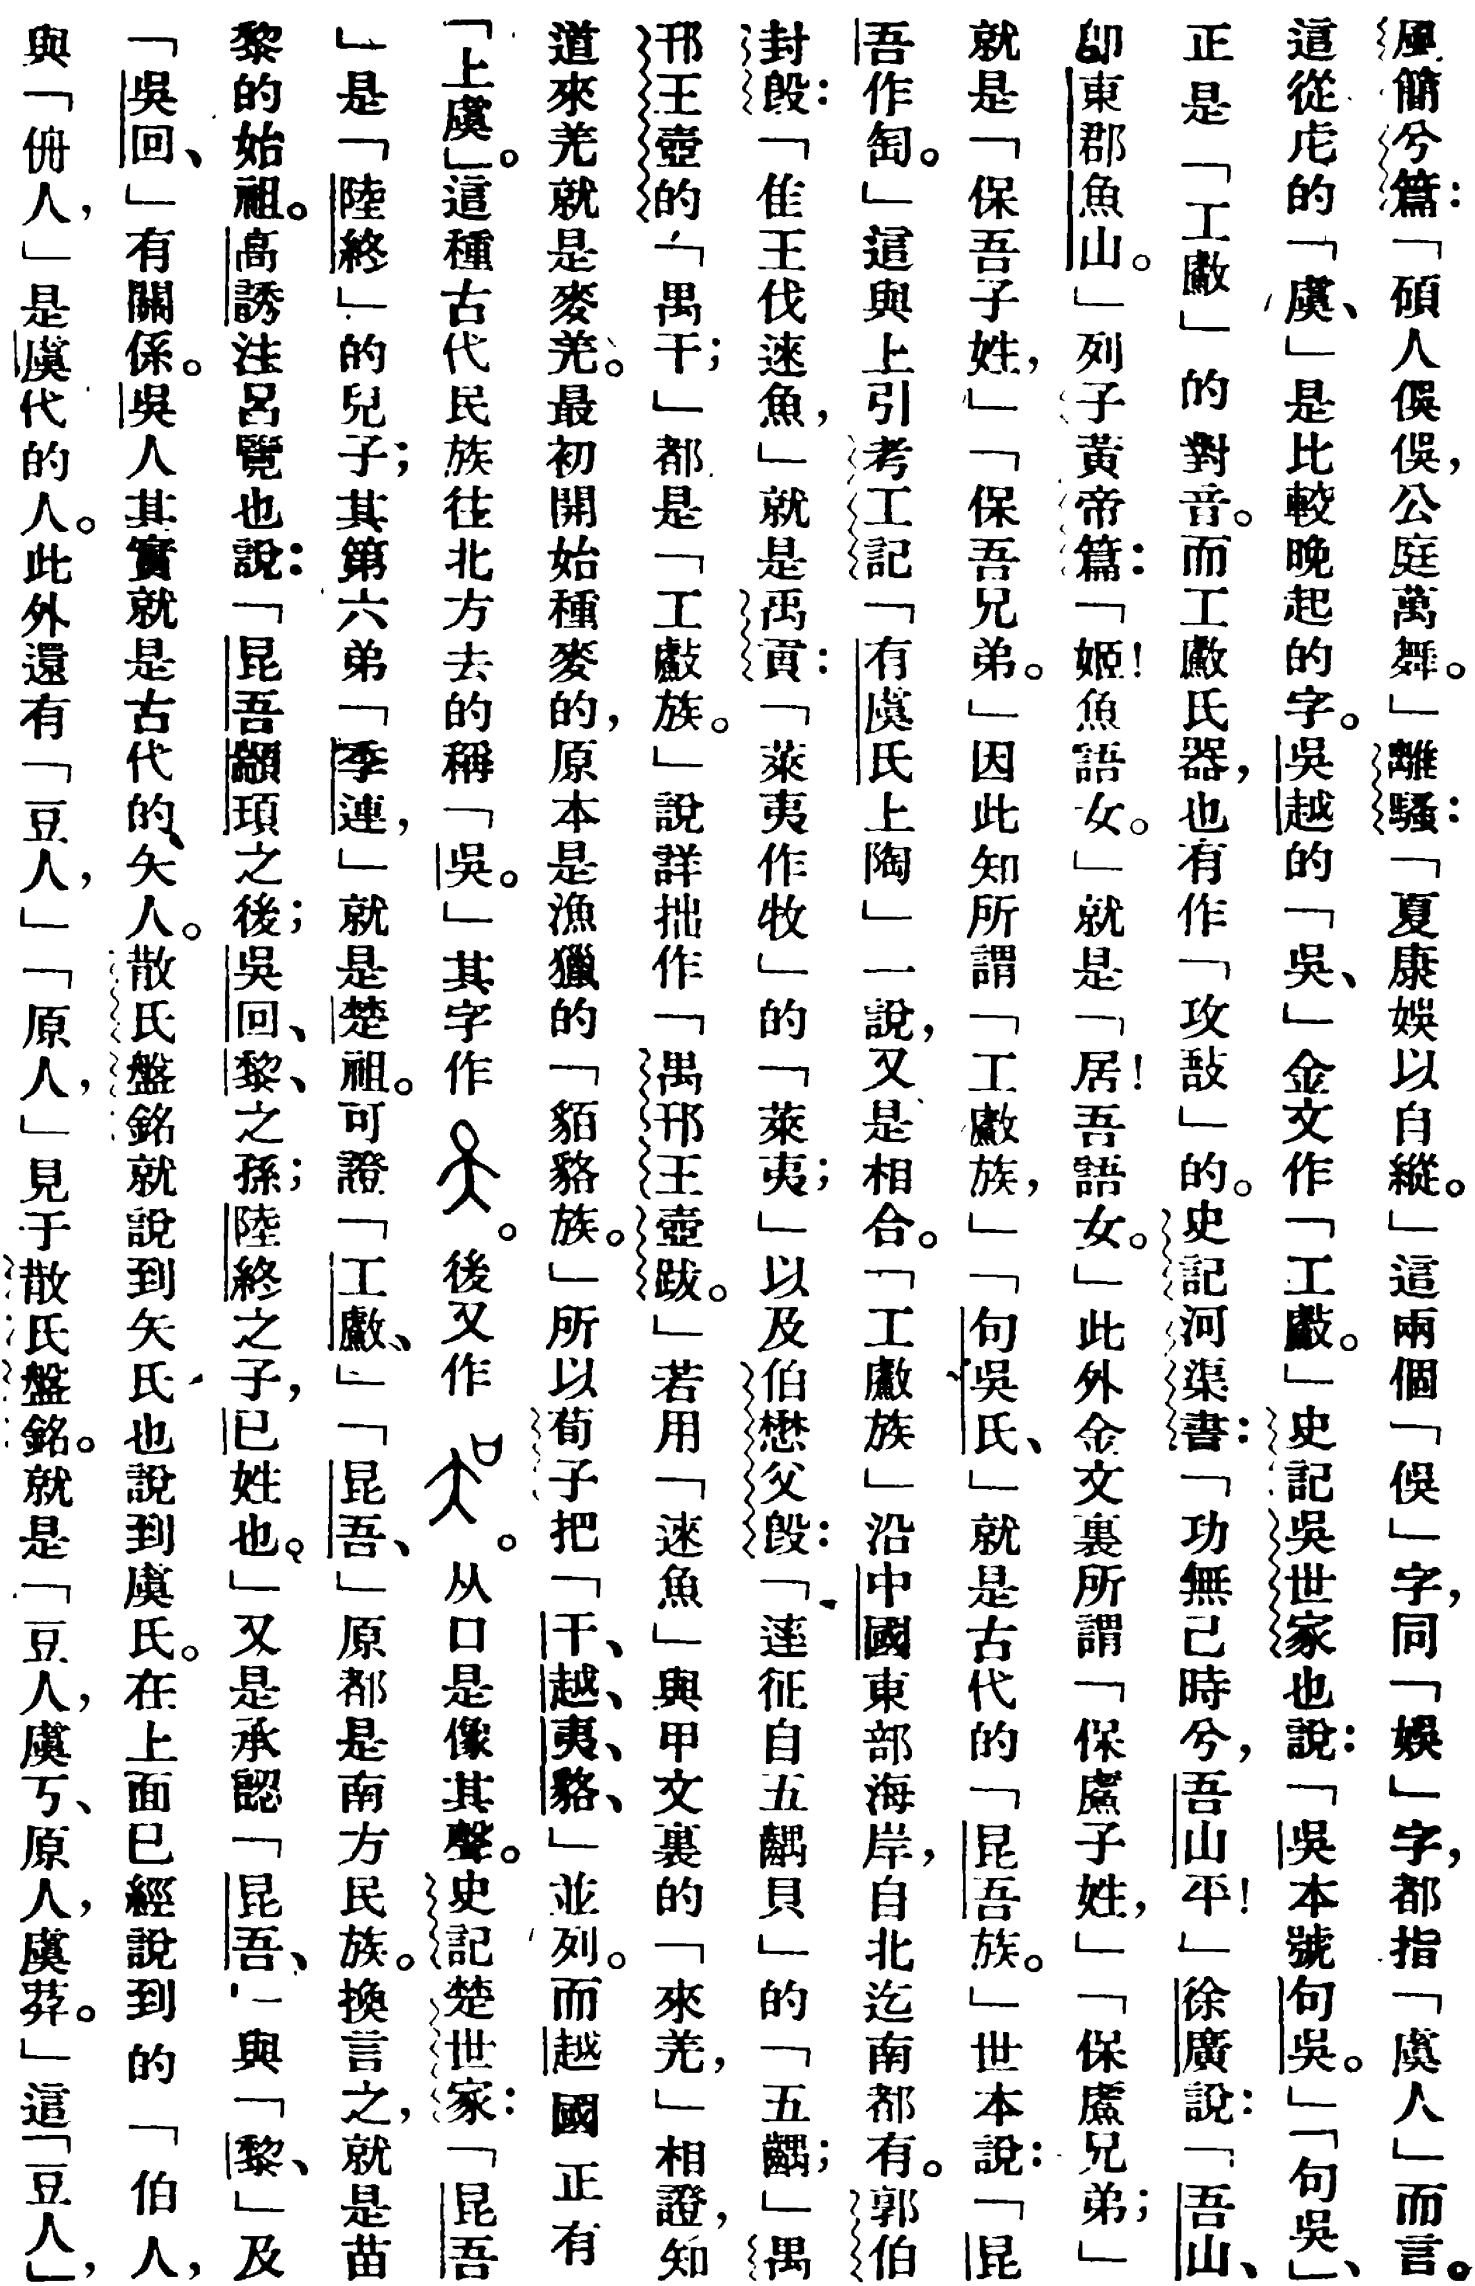 風簡兮篇：「碩人俁俁，公庭萬舞。」離騷：「夏康娛以自縱。」這兩個「俁」字，同「娛」字，都指「虞人」而言。
這從虍的「虞、」是比較晚起的字。吳越的「吳、」金文作「工䱷。」史記吳世家也說：「吳本號句吳。」「句吳」、
正是「工䱷」的對音。而工䱷氏器，也有作「攻敔」的。史記河渠書：「功無已時兮，吾山平！」徐廣說：「吾山、
卽東郡魚山。」列子黃帝篇：「姬！魚語女。」就是「居！吾語女。」此外金文裏所謂「保䱷子姓，」「保䱷兄弟；」
就是「保吾子姓，」「保吾兄弟。」因此知所謂「工䱷族，」「句吳氏、」就是古代的「昆吾族。」世本說：「昆
吾作匋。」這與上引考工記「有虞氏上陶」一說，又是相合。「工䱷族」沿中國東部海岸，自北迄南都有。郭伯
封𣪘：「隹王伐逨魚，」就是禹貢：「萊夷作牧」的「萊夷；」以及伯懋父𣪘：「達征自五齵貝」的「五齵；」禺
邗王壺的「禺干；」都是「工䱷族。」說詳拙作「禺邗王壺跋。」若用「逨魚」與甲文裏的「來羌，」相證，知
道來羌就是麥羌。最初開始種麥的，原本是漁獵的「貊貉族。」所以荀子把「干、越、夷、貉、」並列。而越國正有
「上虞」。這種古代民族往北方去的稱「吳。」其字作。後又作。从口是像其聲。史記楚世家：「昆吾
」是「陸終」的兒子；其第六弟「季連，」就是楚祖。可證「工䱷、」「昆吾、」原都是南方民族。換言之，就是苗
黎的始祖。高誘注呂覽也說：「昆吾顓頊之後；吳回、黎之孫；陸終之子，已姓也。」又是承認「昆吾、」與「黎、」及
「吳回、」有關係。吳人其實就是古代的、夨人。散氏盤銘就說到夨氏也說到虞氏。在上面已經說到的「伯人，
與「㑉人，」是虞代的人。此外還有「豆人，」「原人，」見于散氏盤銘。就是「豆人，虞丂、原人，虞莽。」這「豆人」，